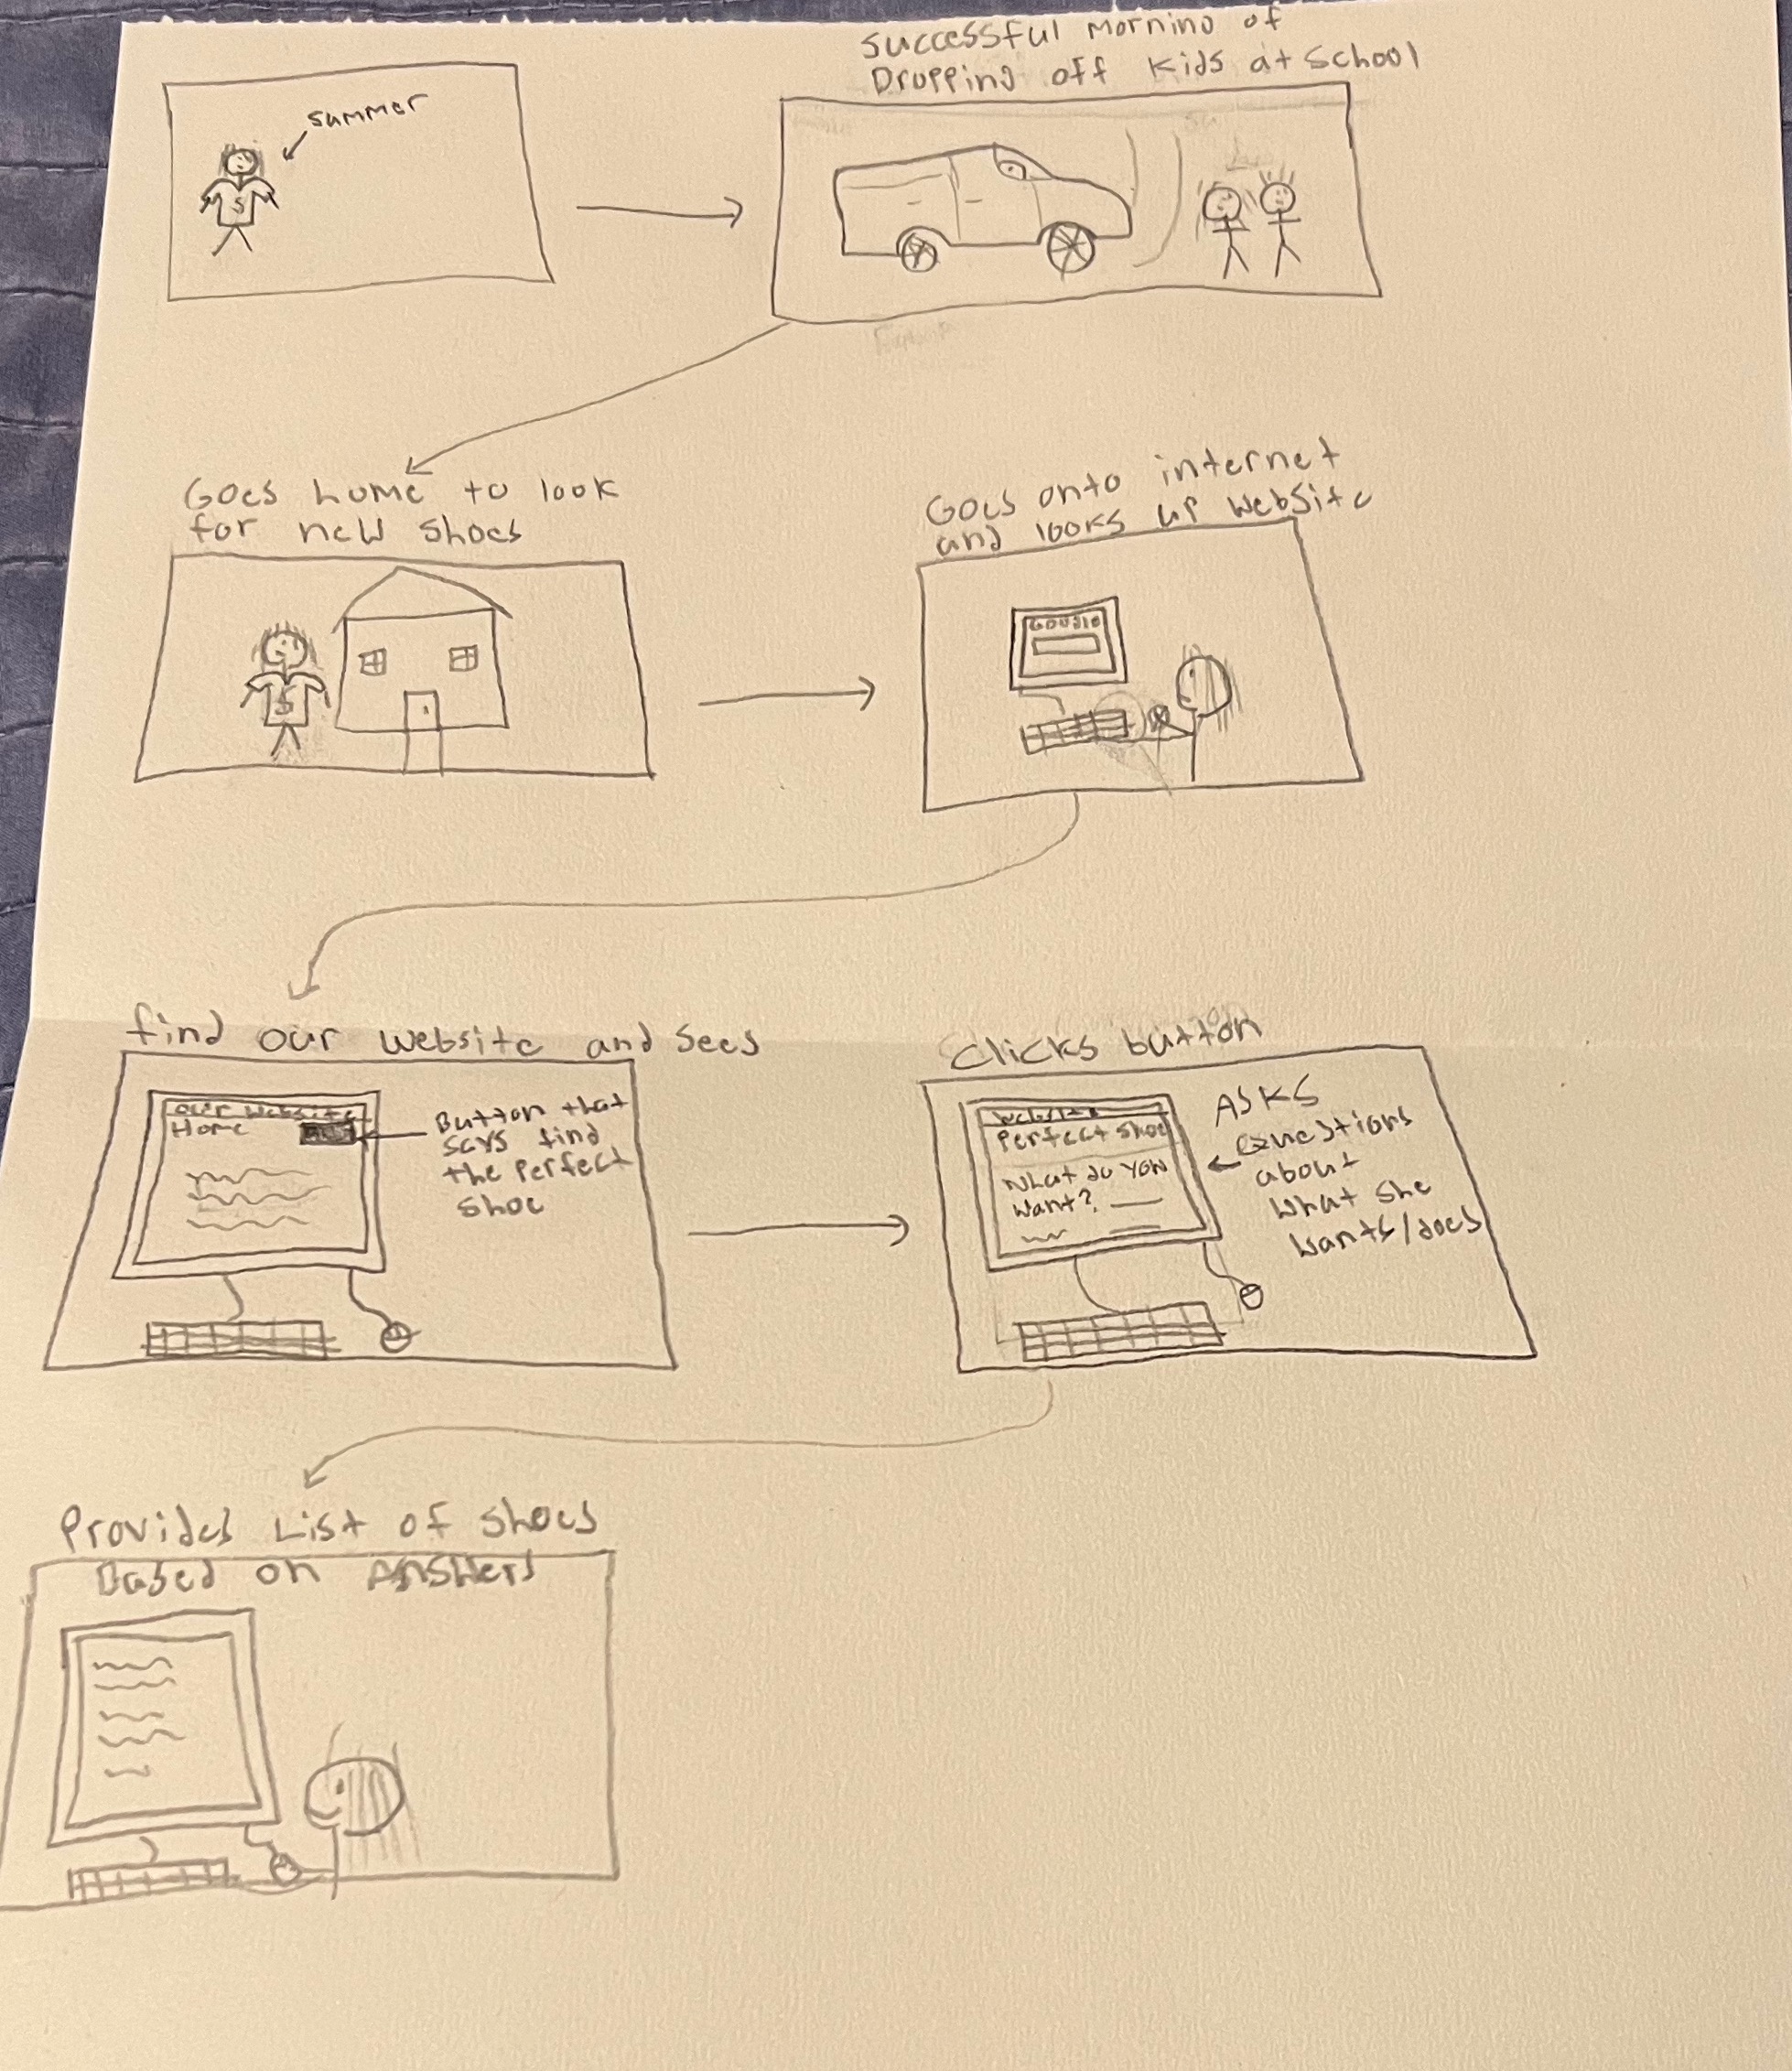 summer
S
Successful Morning of
Dropping off Kids at School
Goes home to look
for new shoes
S
Goes onto internet
and looks up website
Google
find our website and sees
our website
Home
Button that
says find
the perfect
shoe
Clicks button
website
Perfect shoe
What do you
want?
Asks
questions
about
what she
wants/does
Provides List of shoes
Based on Answers